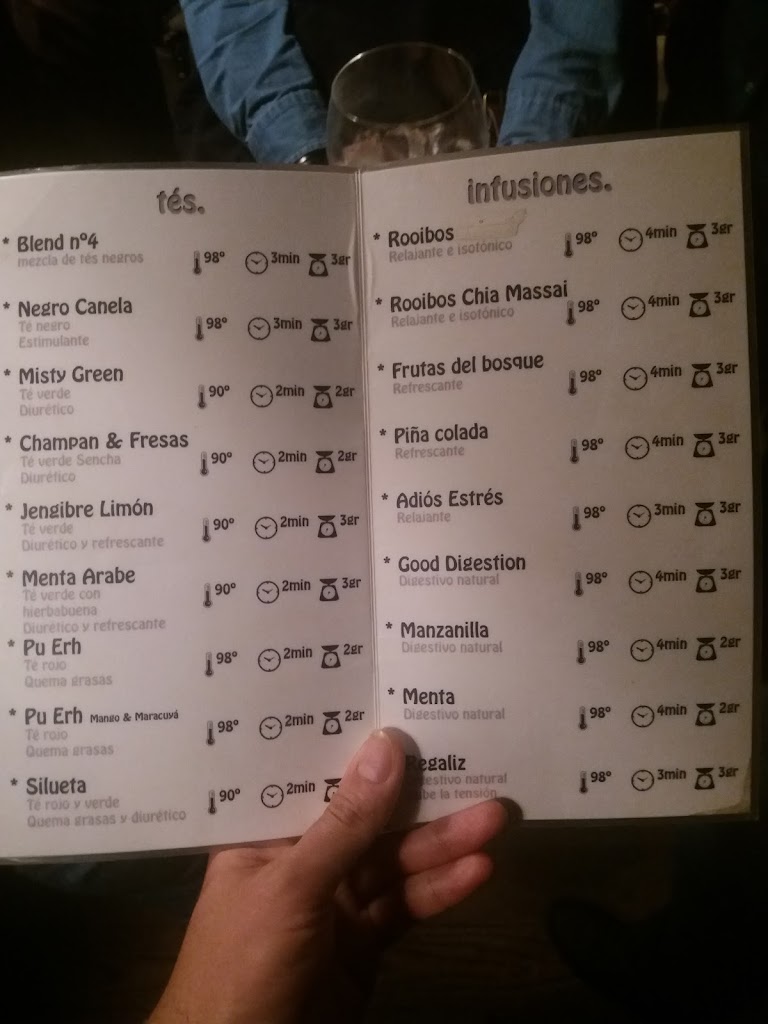 tés.
* Blend nº4
mezcla de tés negros
98º 3min 3gr
* Negro Canela
Té negro
Estimulante
98º 3min 3gr
* Misty Green
Té verde
Diurético
90º 2min 2gr
* Champan & Fresas
Té verde Sencha
Diurético
90º 2min 2gr
* Jengibre Limón
Té verde
Diurético y refrescante
90º 2min 3gr
* Menta Arabe
Té verde con
hierbabuena
Diurético y refrescante
90º 2min 3gr
* Pu Erh
Té rojo
Quema grasas
98º 2min 2gr
* Pu Erh Mango & Maracuyá
Té rojo
Quema grasas
98º 2min 2gr
* Silueta
Té rojo y verde
Quema grasas y diurético
90º 2min
infusiones.
* Rooibos
Relajante e isotónico
98º 4min 3gr
* Rooibos Chia Massai
Relajante e isotónico
98º 4min 3gr
* Frutas del bosque
Refrescante
98º 4min 3gr
* Piña colada
Refrescante
98º 4min 3gr
* Adiós Estrés
Relajante
98º 3min 3gr
* Good Digestion
Digestivo natural
98º 4min 3gr
* Manzanilla
Digestivo natural
98º 4min 2gr
* Menta
Digestivo natural
98º 4min 2gr
Regaliz
natural
la tensión
98º 3min 3gr